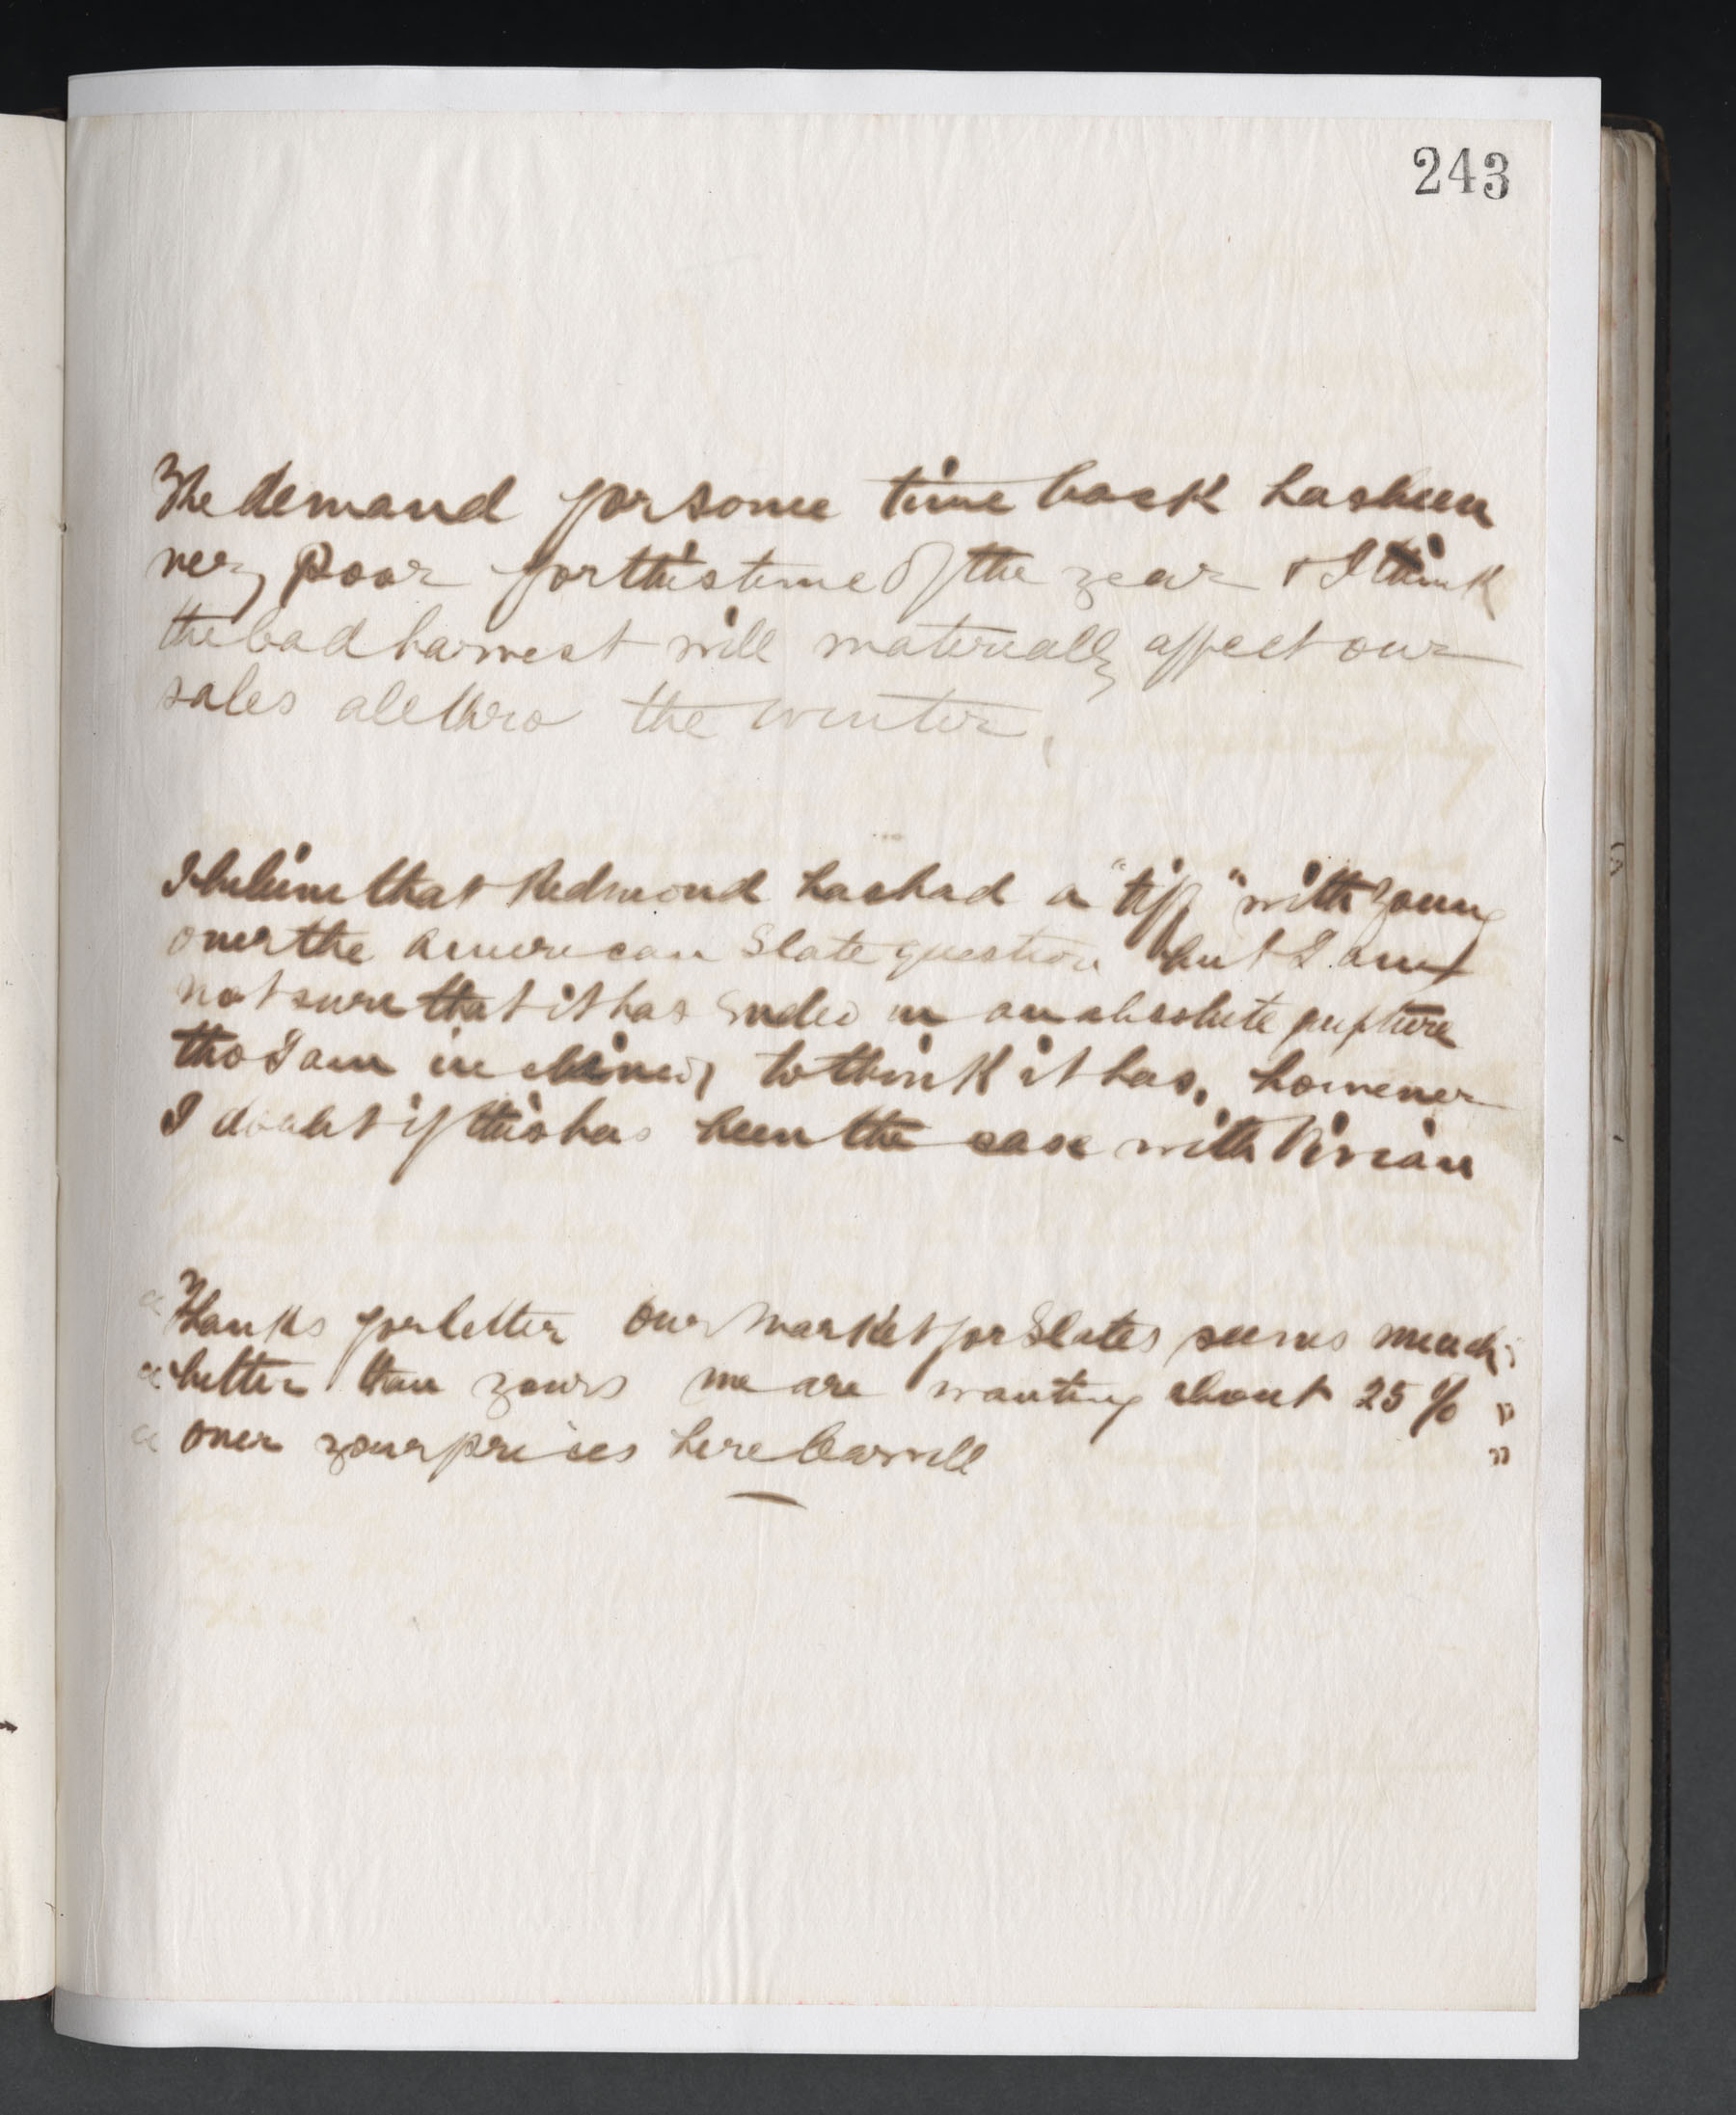 243
The demand for some time back has been
very poor for this time of the year & I think
the bad harvest will materially affect our
sales all thro the winter.
I believe that Redmond has had a "tiff" with Young
over the American Slate question but I am
not sure that it has ended in an absolute rupture
tho I am inclined to think it has, however
I doubt if this has been the case with Vivian
"Thanks for letter Our market for Slates seems much "
"better than yours we are wanting about 25 % "
"over your prices here "